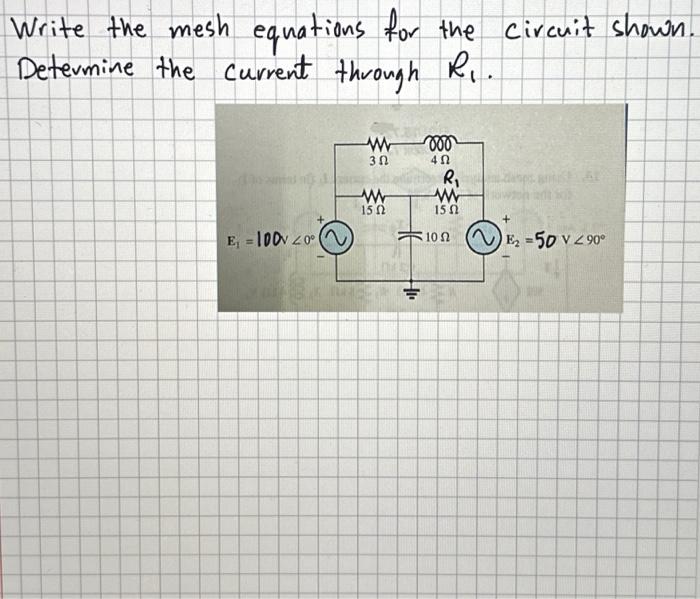 Write the mesh equations for the circuit shown.
Determine the current through R₁.
3 Ω 4 Ω
R₁
15 Ω 15 Ω
+ +
E₁ = 100V ∠0° 10 Ω E₂ = 50 V ∠ 90°
− −